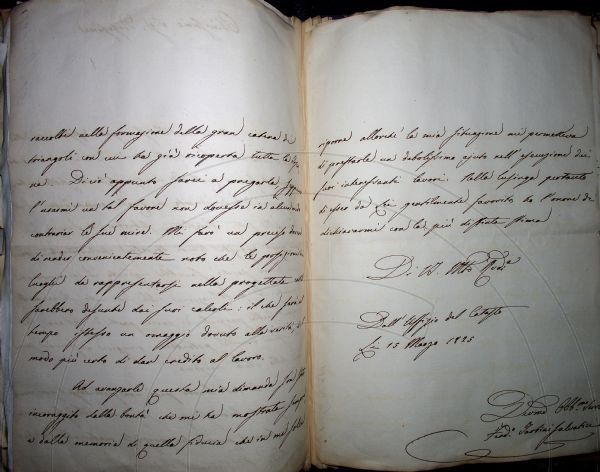 raccolti nella formazione della gran catena di
triangoli con cui ha già ricoperta tutta la
ne. Di ciò appunto sarei a pregarla
l'usarmi un tal favore non dovesse in alcun
contrariar le sue mire. Mi farò un preciso
di render convenientemente noto che le posizioni
luoghi da rappresentarsi nella progettata
sarebbero desunte dai suoi calcoli: il che sarà
tempo istesso un omaggio dovuto alla verità, il
modo più certo di dar credito al lavoro.
Ad avanzarle questa mia dimanda son
incoraggito dalla bontà che mi ha mostrata
e dalla memoria di quella fiducia che in me
riporre allorché la mia situazione mi permetteva
di prestarle un debolissimo ajuto nell'esecuzione dei
suoi interessanti lavori. Nella lusinga pertanto
di esser da Lei gentilmente favorito ho l'onore di
dichiararmi con la più distinta stima
Di V.
Dall'Uffizio del Catasto
Li 15 Marzo 1825
Devmo Obb.mo
Fed.o Tartini Salvatici